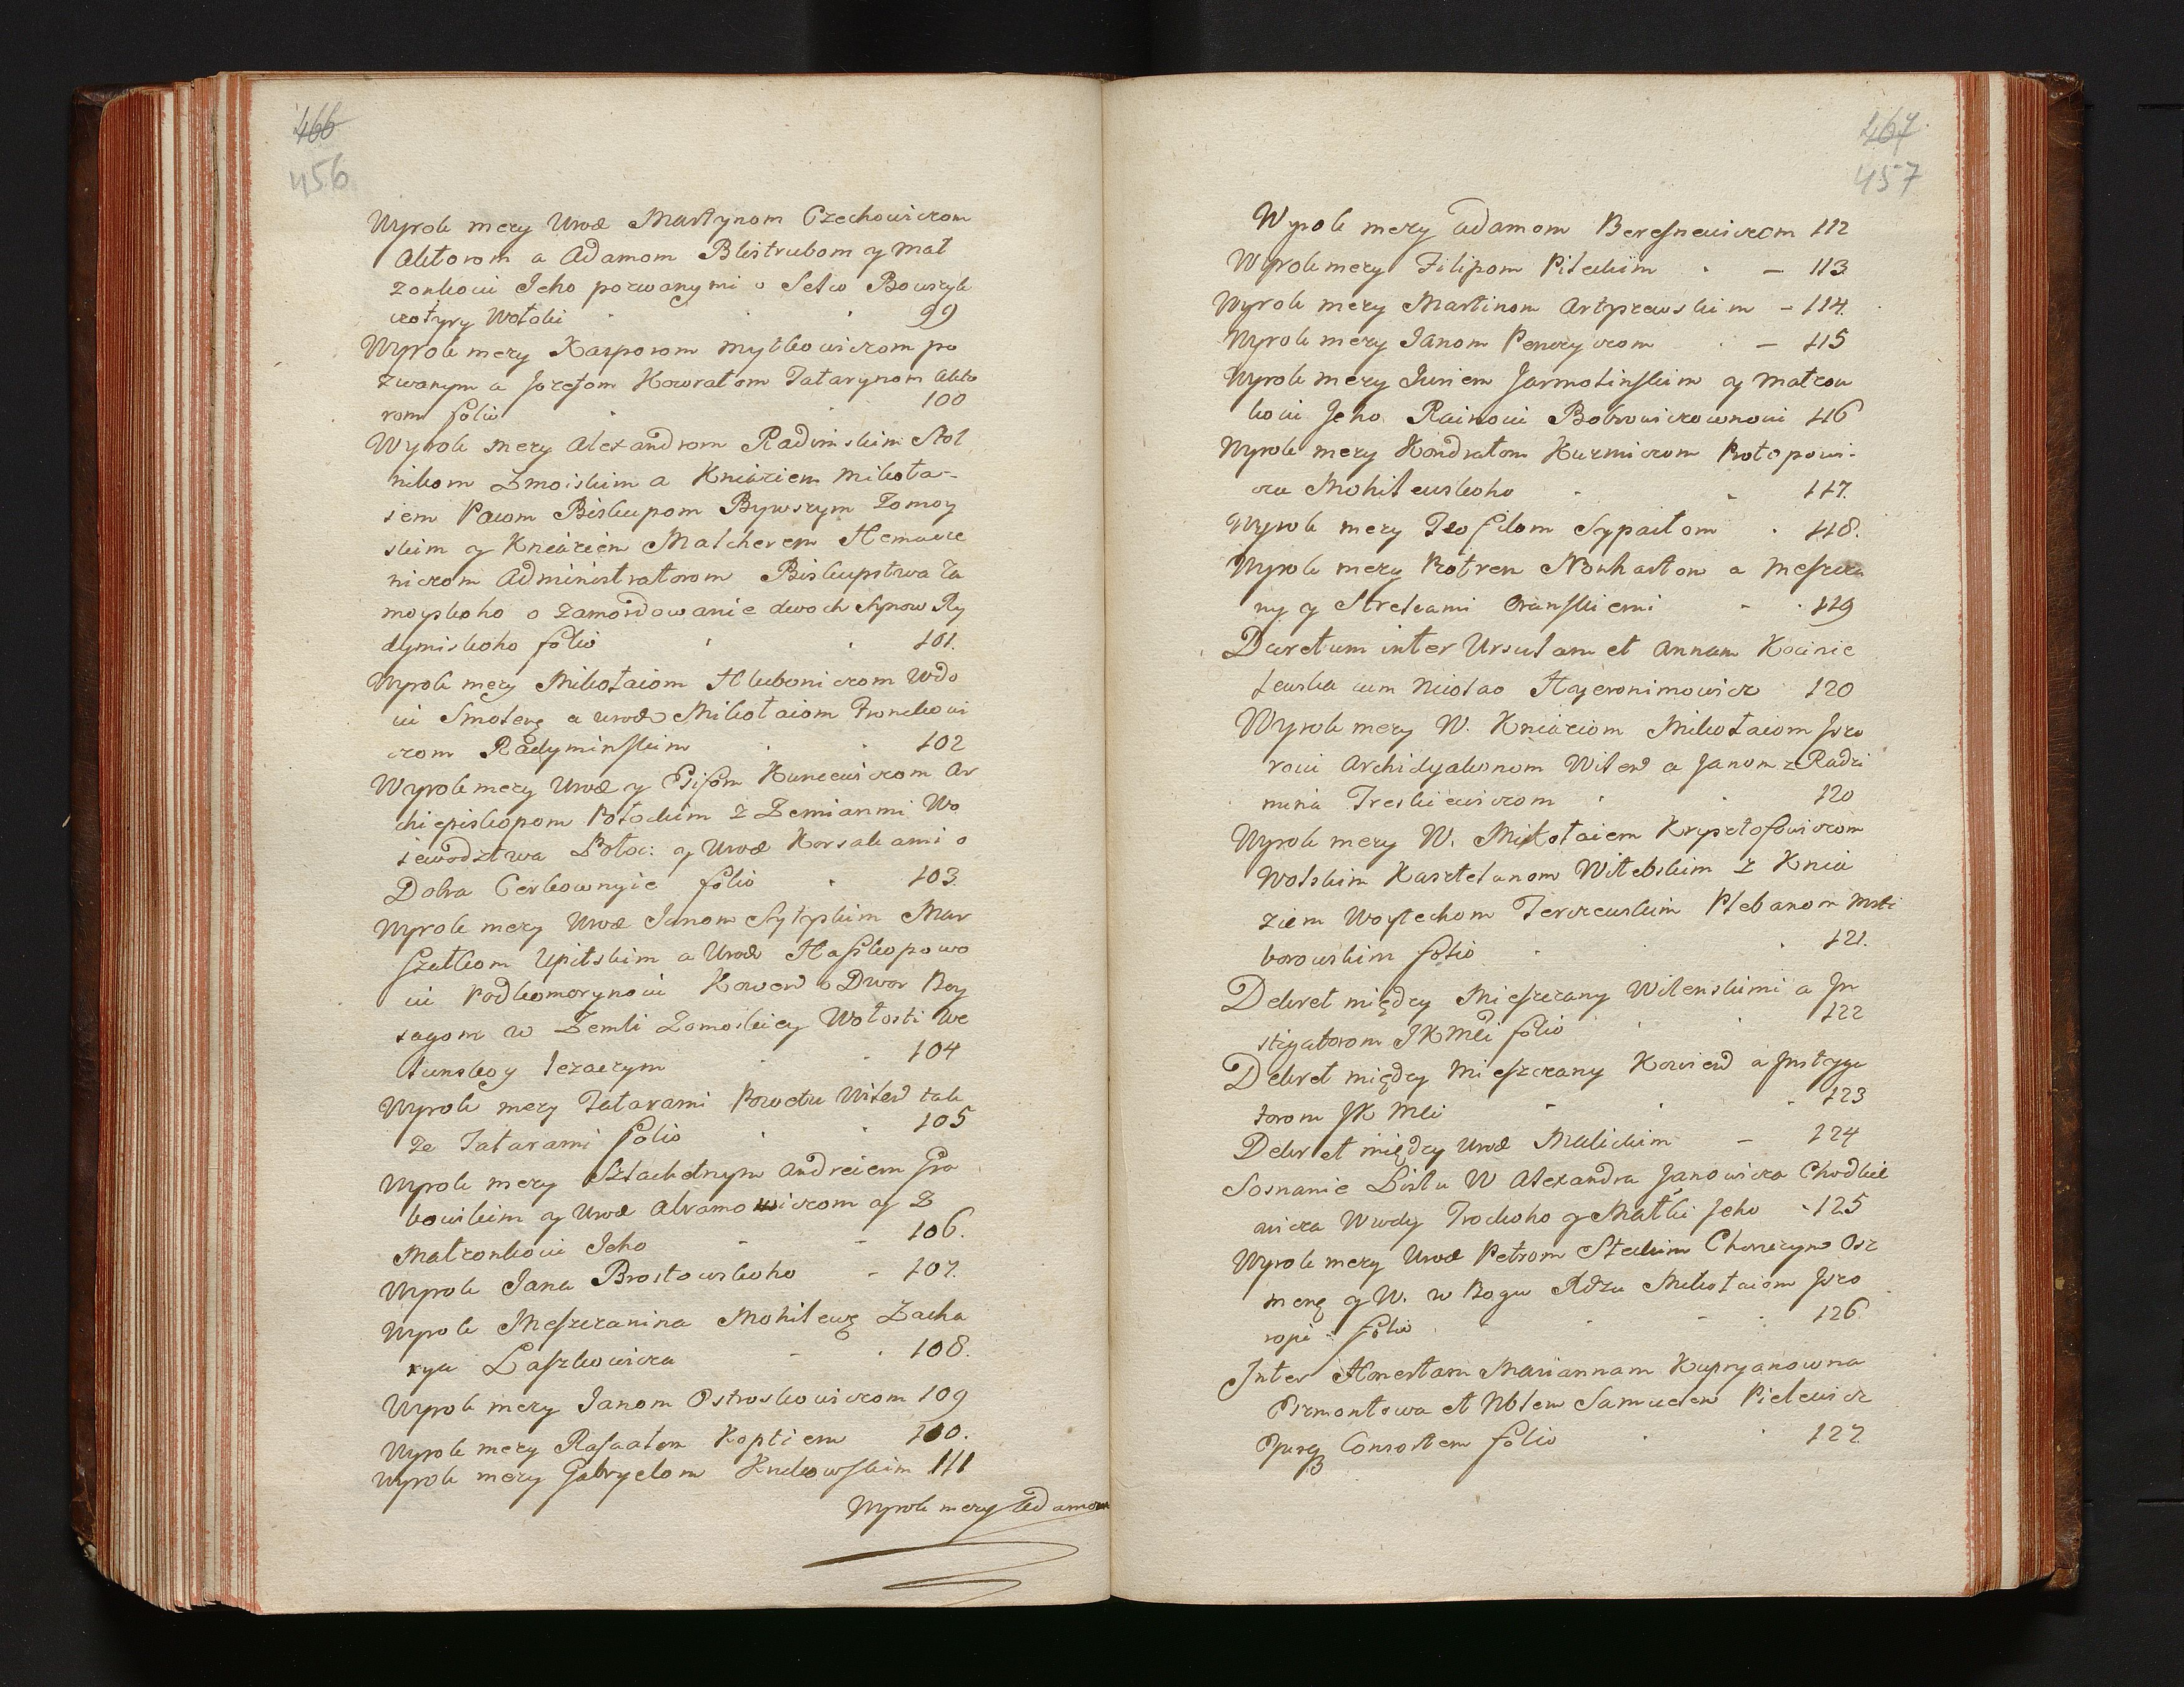 466
456
Wyrok mezy Urod Martynom Czechowiczom
Aktorom a Adamom Blistrubom y Mał
zonkoiu Jeho pozwanymi o Selco Bowszyk
cztyry Wołoki 99
Wyrok mezy Kasporom Mytkowiczom po
zwanym a Jozefom Kowratom Tatarynom Akto
rom folio 100
Wyrok mezy Alexandrom Radimskim Stol
nikom Zmoiskim a Kniaziem Mikoła-
iem Pacom Biskupom Bywszym Zomoy
skim y Kniaziem Malcherem Hemawe
niczom Administratorom Biskupstwa Za
moyskoho o zamordowanie dwoch Synow Ry
dymiskoho folio 101.
Wyrok mezy Mikołaiom Hluboniczom Wdo
iu Smolens a urod Mikołaiom Fronckowi
czom Radyminskim 102
Wyrok mezy Urod y Psifom Kuncewiczom Ar
chiepiskopom Połockim z Zemianmi Wo
iewodztwa Połoc: y Urod Korsakami o
Dobra Cerkownyie folio 103.
Wyrok mezy Urod Janom Sytyskim Mar
szałkom Upitskim a Urod Haszkopowo
iu Podkomorynoiu Kowen o Dwor Roy
sagom w Zemli Zomoskiey Wołosti We
lunskoy lezaczym 104
Wyrok mezy Tatarami Powetu Wilen tak
ze Tatarami folio 105
Wyrok mezy Szlachetnym Andreiem Gra
bowskim y Urod Abramowiczom y Z
Małzonkoiu Jeho 106.
Wyrok Jana Brostowskoho 107.
Wyrok Meszczanina Mohilews Zacha
rya Laszkowicza 108.
Wyrok mezy Janom Ostroskowiczom 109
Wyrok mezy Rafaałom Koptiem 110.
Wyrok mezy Gabryelom Knekowskim 111
Wyrok mezy Adamom
467
457
Wyrok mezy Adamom Beresnewiczom 112
Wyrok mezy Filipom Pileckim 113
Wyrok mezy Martinom Artyszewskim 114.
Wyrok mezy Janom Penczyczom 115
Wyrok mezy Juriem Jarmolinskim y Małzon
koiu Jeho Rainoiu Bobrowiczownoiu 116
Wyrok mezy Kondratom Kuzmiczom Protopowi-
cza Mohilewskoho 117.
Wyrok mezy Teofilom Sypaiłom 118.
Wyrok mezy Piotrem Nonhartom a Meszcza
ny y Strelcami Oranskiemi 119
Decretum inter Ursulam et Annam Kocinie
lewska cum Nicolao Hayeronimowicz 120
Wyrok mezy W. Kniaziom Mikołaiom Jzo
roiu Archidyakonom Wilen a Janom z Radzi
mina Freskiewiczom 120
Wyrok mezy W. Mikołaiem Krysztofowiczom
Wolskim Kasztelanom Witebskim z Knia
ziem Woytechom Terczewskim Plebanom Mści
borowskim folio 121.
Dekret między Mieszczany Wilenskimi a In
stigatorom JKMci folio 122
Dekret między Mieszczany Kowien a Instyga
torom JK Mci 123
Dekret między Urod Malickim 124
Soznanie Listu W Alexandra Janowicza Chodkie
wicza Wwdy Trockoho y Matki Jeho 125
Wyrok mezy Urod Petrom Steckim Choruzym Osz
mens y W. w Bogu Xdzu Mikołaiom Jzo
ropi folio 126
Inter Honestam Mariannam Kupryanowna
Prmontowa et Nblem Samuelem Pielewicz
Jusq Consortem folio 127